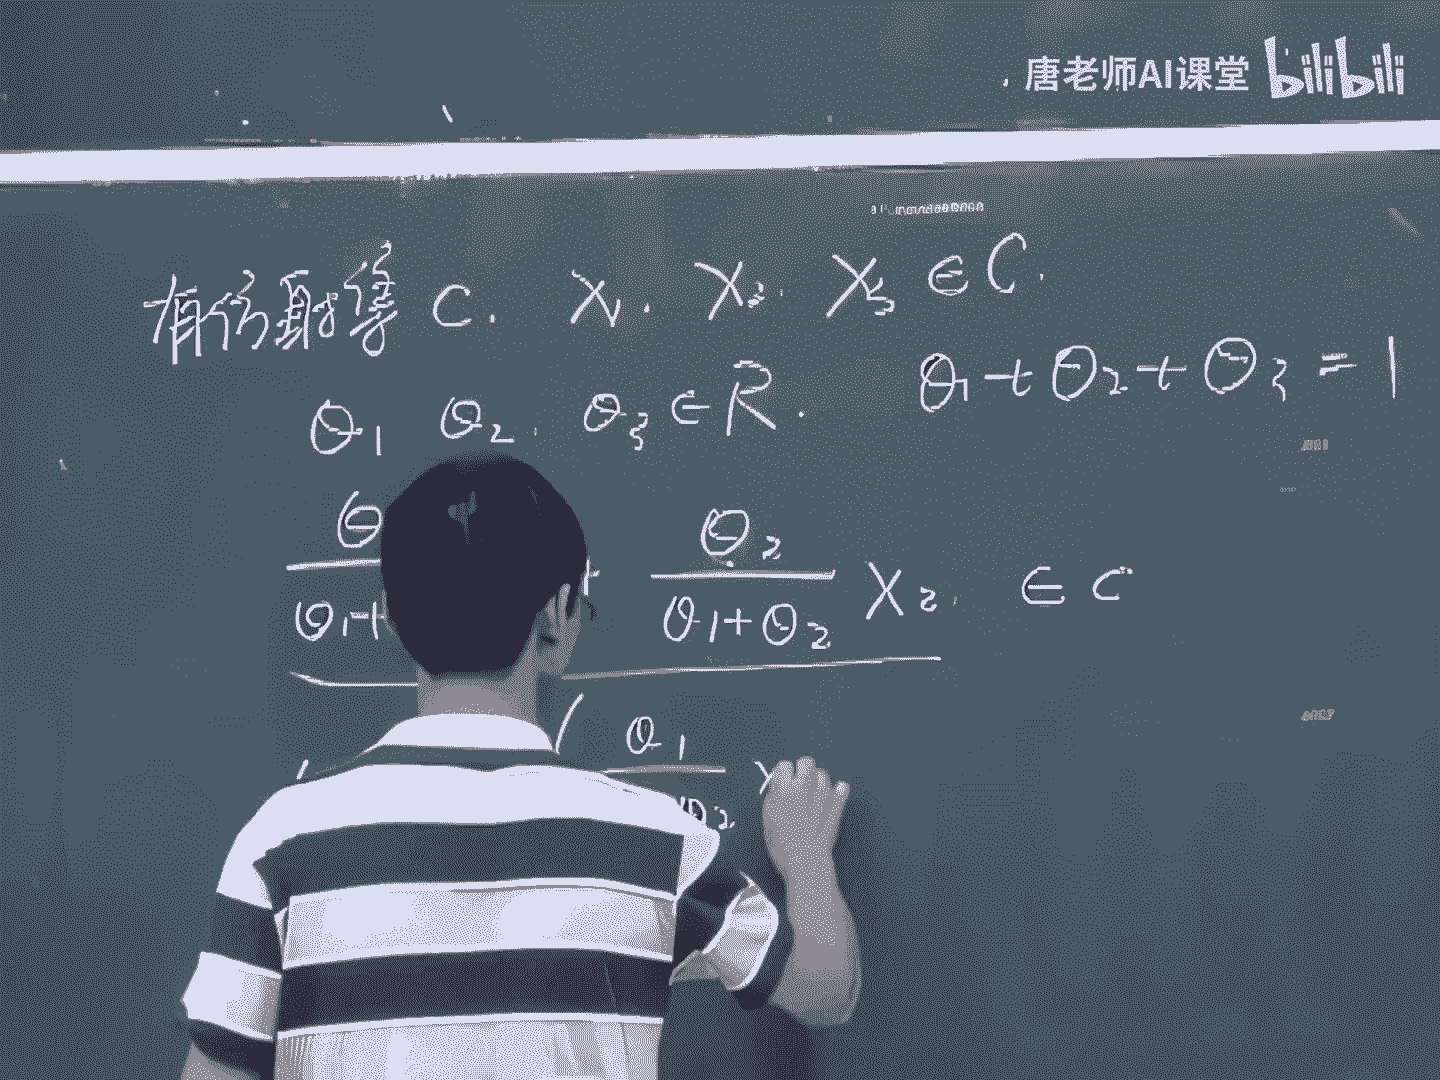 唐老师AI课堂 bilibili
有仿射集 C. X₁. X₂. X₃ ∈ C.
θ₁ θ₂. θ₃ ∈ R. θ₁+θ₂+θ₃ = 1
θ + θ₂
θ₁+ θ₁+θ₂ X₂. ∈ C
( θ₁
θ₂